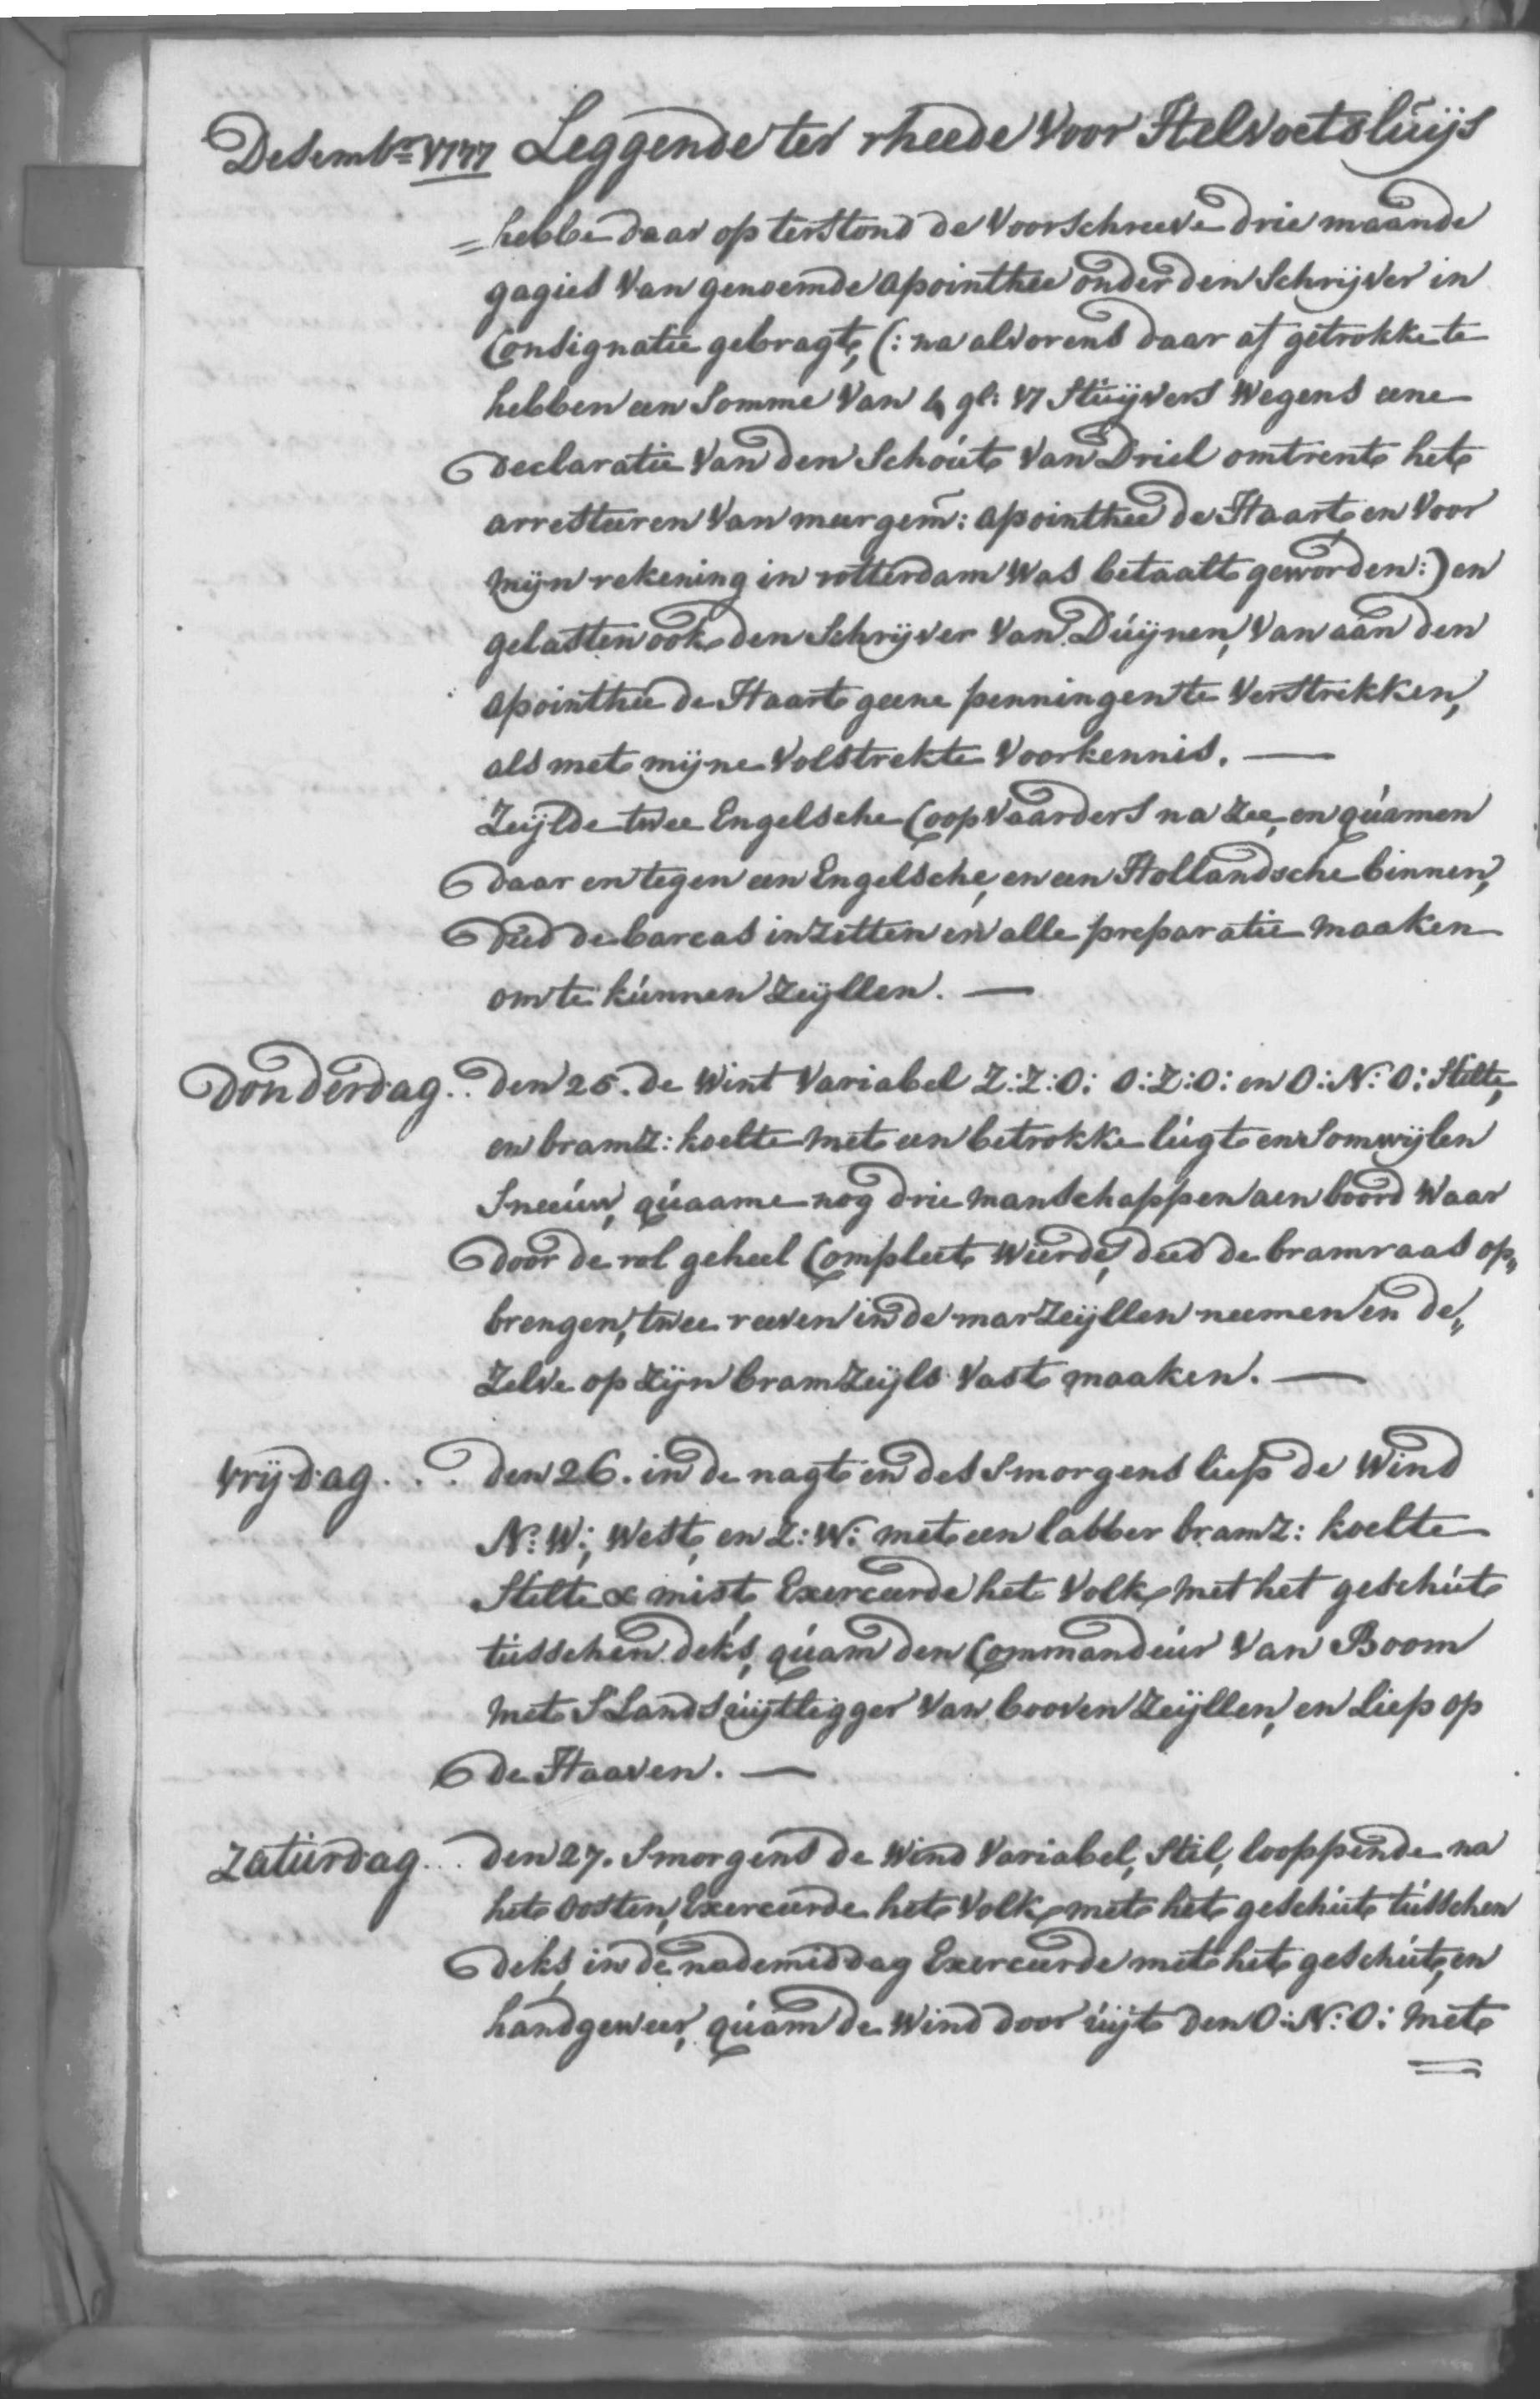 Desembr= 1777 Leggende ter rheede voor Helvoetsluijs
= hebbe daar op terstond de voorschreeve drie maande
gagies van genoemde apointhee onder den Schrijver in
Consignatie gebragt, (: na alvorens daar af getrokke te
hebben een Somme van 4 gl: 17 Stuijvers wegens eene
declaratie van den Schout van Driel omtrent het
arresteeren van meergem̄: apointhee de Haart en voor
mijn rekening in rotterdam was betaalt geworden:) en
gelasten ook den Schrijver van Duijnen, van aan den
apointhee de Haart geene penningen te verstrekken,
als met mijne volstrekte voorkennis. —
Zeijlde twee Engelsche Coopvaarders na Zee, en quamen
daar en tegen een Engelsche, en een Hollandsche binnen,
deed de barcas inzetten en alle preparatie maaken
om te kunnen Zeijllen. —
Donderdag .. den 25. de Wint Variabel Z:Z:O: O:Z:O: en O:N:O: Stelte,
en bramZ: koelte met een betrokke lugt en Somwijlen
Sneeuw, quaame nog drie manschappen aen boord waar
door de rol geheel Compleet wierde, deed de bramraas op„
brengen, twee reeven in de marZeijllen neemen en de„
Zelve op Zijn bramZeijls vast maaken. —
Vrijdag . . . den 26. in de nagt en des Smorgens liep de Wind
N:W:, West, en Z:W: met een labber bramZ: koelte
Stelte & mist, Exerceerde het Volk met het geschut
tusschen deks, quam den Commandeur van Boom
met S'Lands uijtlegger van booven Zeijllen, en Liep op
de Haaven. —
Zaturdag ... den 27. Smorgens de Wind Variabel, Stil, looppende na
het Oosten, Exerceerde het Volk met het geschut tusschen
deks, in de nademiddag Exerceerde met het geschut, en
handgeweer, quam de Wind door uijt den O:N:O: met
=